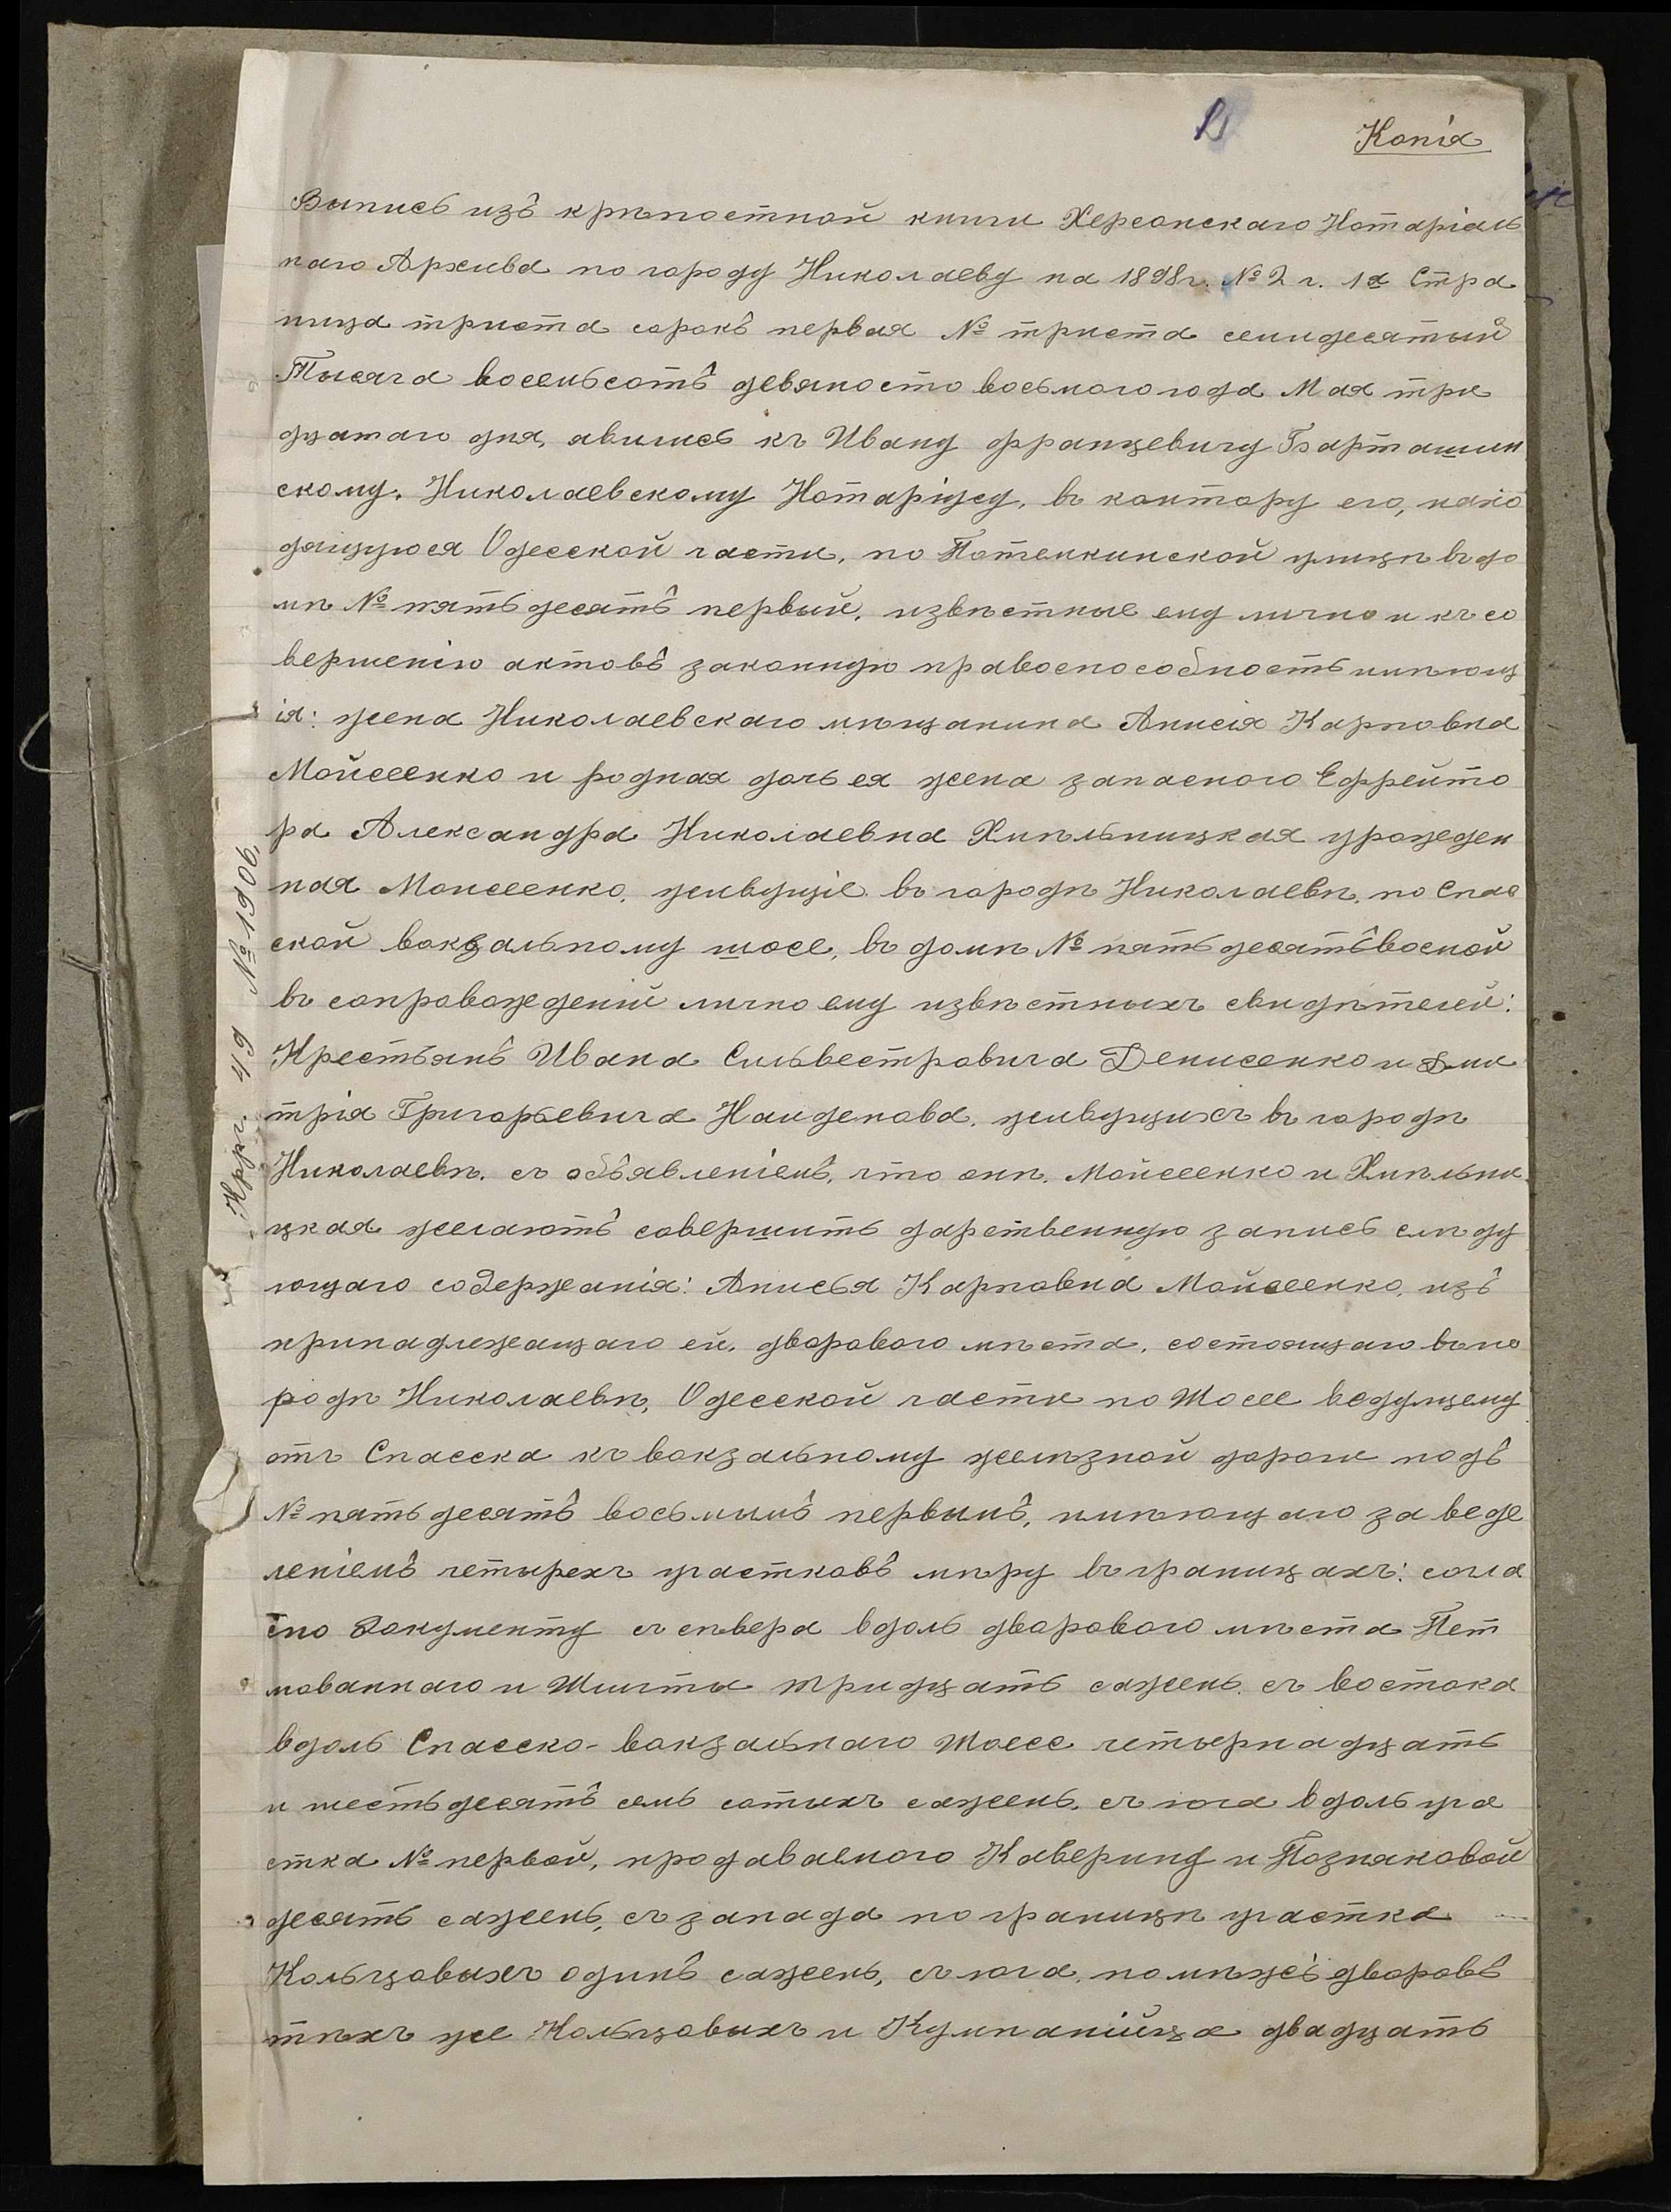 Копія
Выпись изъ крѣпостной книги Херсонскаго Нотаріаль
наго Архива по городу Николаеву на 1898 г. № 2 ч. 1я Стра
ница триста сорокъ первая № триста семидесятый
Тысяча восемьсотъ девяносто восьмого года Мая три
дцатаго дня, явились къ Ивану Францевичу Барташин
скому. Николаевскому Нотаріусу, въ контору его, нахо
дящуюся Одесской части, по Потемкинской улицѣ въ до
мѣ № пятьдесятъ первый, извѣстные ему лично и къ со
вершенію актовъ законную правоспособность имѣющ
ія: жена Николаевскаго мѣщанина Анисія Карповна
Мойсеенко и родная дочь ея жена запасного Ефрейто
ра Александра Николаевна Хмѣльницкая урожден
ная Моисеенко, живущіе въ городѣ Николаевѣ, по Спас
ской вокзальному шосе, въ домѣ № пятьдесятъ восмой
въ сопровожденій лично ему извѣстныхъ свидѣтелей:
Крестьянъ Ивана Сильвестровича Денисенко и Дми
трія Григорьевича Найденова, живущихъ въ городѣ
Николаевѣ, съ объявленіемъ, что онѣ, Мойсеенко и Хмѣльни
цкая желаютъ совершить дарственную запись слѣду
ющаго содержанія: Анисья Карповна Мойсеенко, изъ
принадлежащаго ей, дворового мѣста, состоящаго въ го
родѣ Николаевѣ, Одесской части по Шоссе ведущему
отъ Спасска къ вокзальному желѣзной дороги подъ
№ пятьдесятъ восьмымъ первымъ, имѣющаго за веде
леніемъ четырехъ участковъ мѣру въ границахъ: согла
сно документу съ сѣвера вдоль дворового мѣста
мованнаго и тридцать сажень, съ востока
вдоль Спасско-вокзальнаго Шоссе четырнадцать
и шестьдесятъ семь сотыхъ сажень, съ юга вдоль уча
стка № первой, продаваемого Каверину и Позняковой
десять сажень, съ запада по границѣ участка
Кольцовыхъ одинъ сажень, съ юга, по мѣжѣ дворовъ
тѣхъ же Кольцовыхъ и Кумпанійца двадцать
Крр. 49 № 1906,